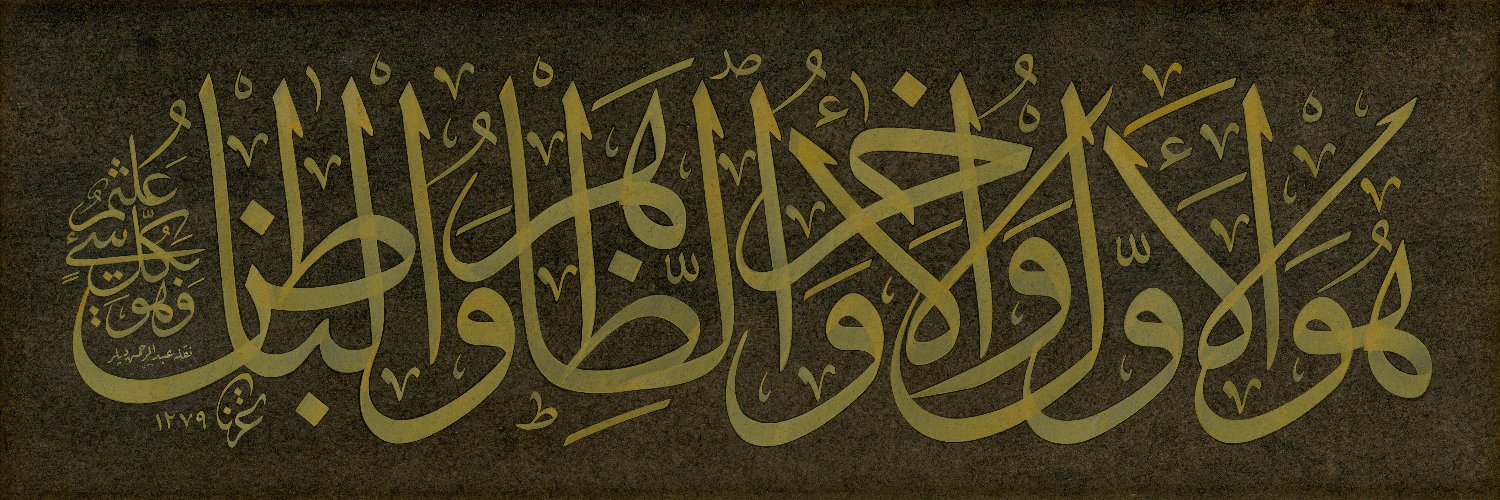 هُوَ الْأَوَّلُ وَالْآخِرُ وَالظَّاهِرُ وَالْبَاطِنُ
وَهُوَ بِكُلِّ شَيْءٍ عَلِيمٌ
نقله عبد الرحمن
١٢٧٩